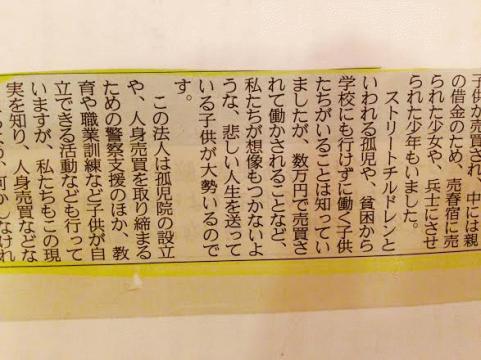 子供が売買され、中には親
の借金のため、売春宿に売
られた少女や、兵士にさせ
られた少年もいました。
ストリートチルドレンと
いわれる孤児や、貧困から
学校にも行けずに働く子供
たちがいることは知ってい
ましたが、数万円で売買さ
れて働かされることなど、
私たちが想像もつかないよ
うな、悲しい人生を送って
いる子供が大勢いるので
す。
この法人は孤児院の設立
や、人身売買を取り締まる
ための警察支援のほか、教
育や職業訓練など子供が自
立できる活動なども行って
いますが、私たちもこの現
実を知り、人身売買などな